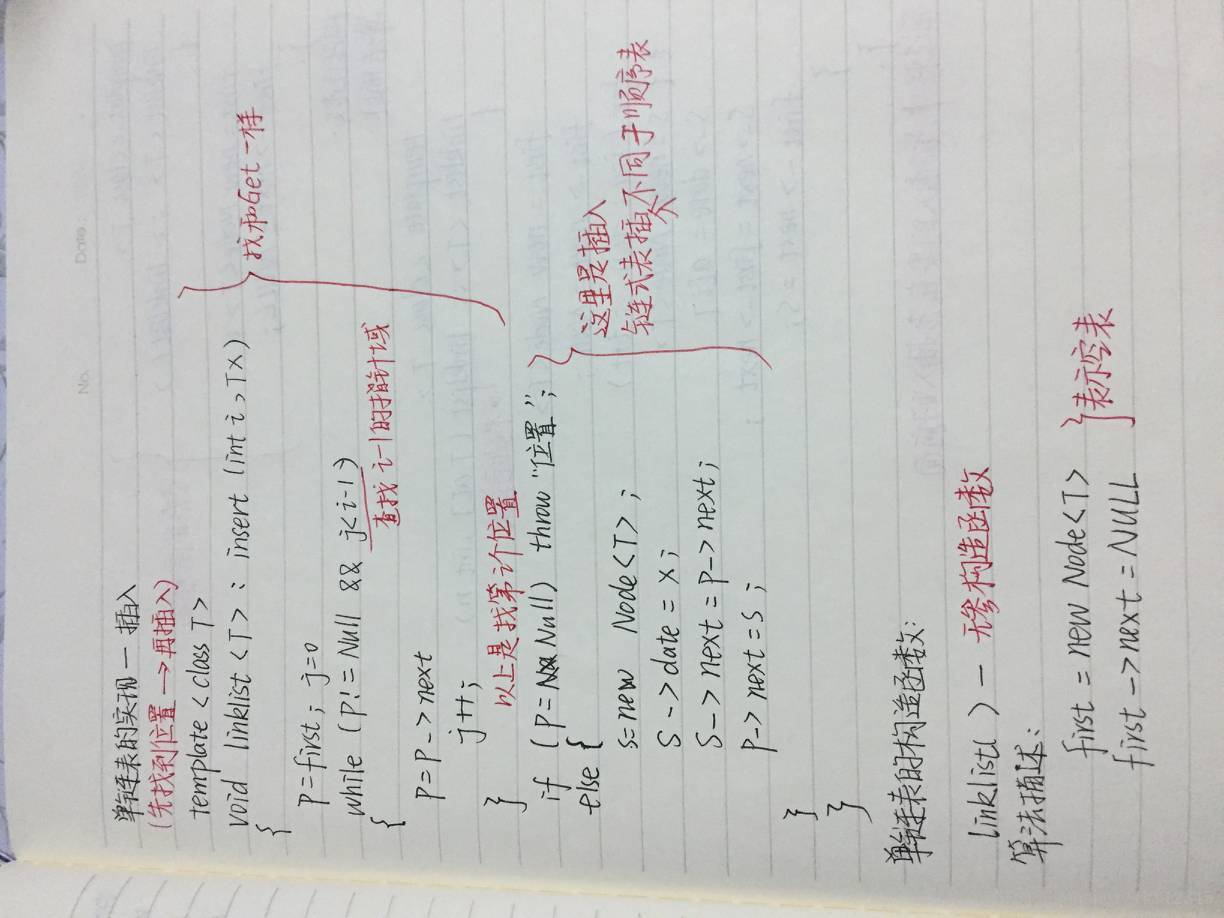 No.
Date
单链表的实现 — 插入
(先找到位置 → 再插入)
template < class T>
void linklist <T> : insert (int i, Tx)
找和Get一样
{
p=first; j=0
while (p!= Null && j<i-1)
查找 i-1的指针域
{
p=p->next
j++;
}
以上是找第i个位置
if (p= Null) throw "位置";
else {
这里是插入
s=new Node<T>;
链式表插入不同于顺序表
s->date = x;
s->next = p->next;
p->next=s;
}
}
单链表的构造函数:
linklist( ) — 无参构造函数
算法描述:
first = new Node<T>
表示空表
first ->next = NULL